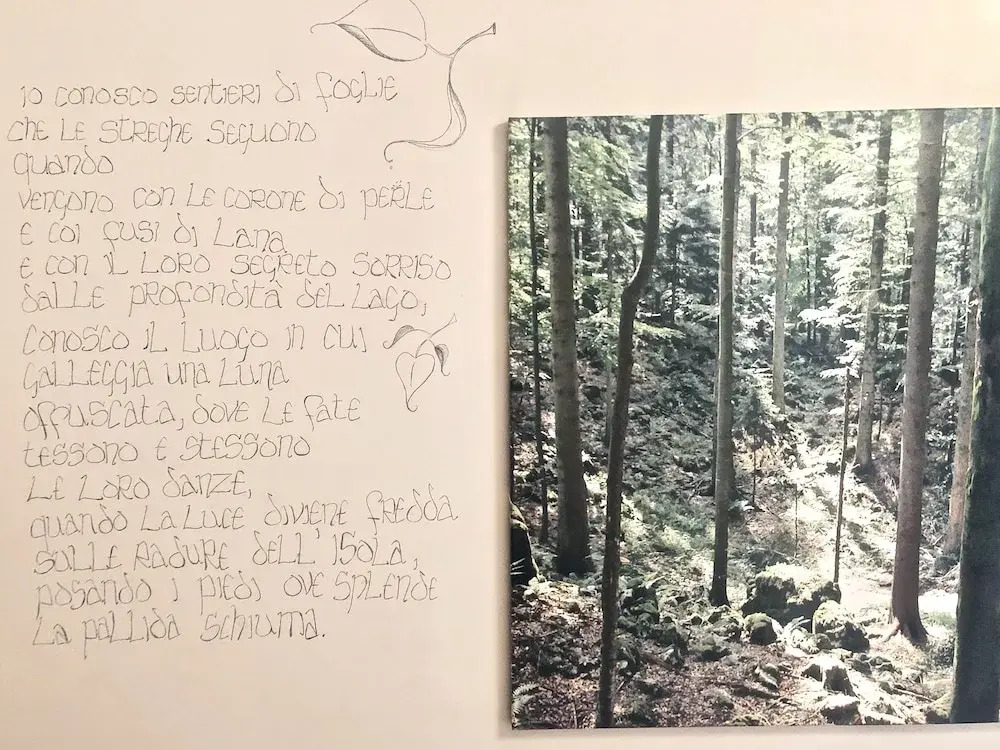 io conosco sentieri di foglie
che le streghe seguono
quando
vengono con le corone di perle
e coi fusi di lana
e con il loro segreto sorriso
dalle profondità del lago,
conosco il luogo in cui
galleggia una luna
offuscata, dove le fate
tessono e stessono
le loro danze,
quando la luce diviene fredda
sulle radure dell'isola,
posando i piedi ove splende
la pallida schiuma.